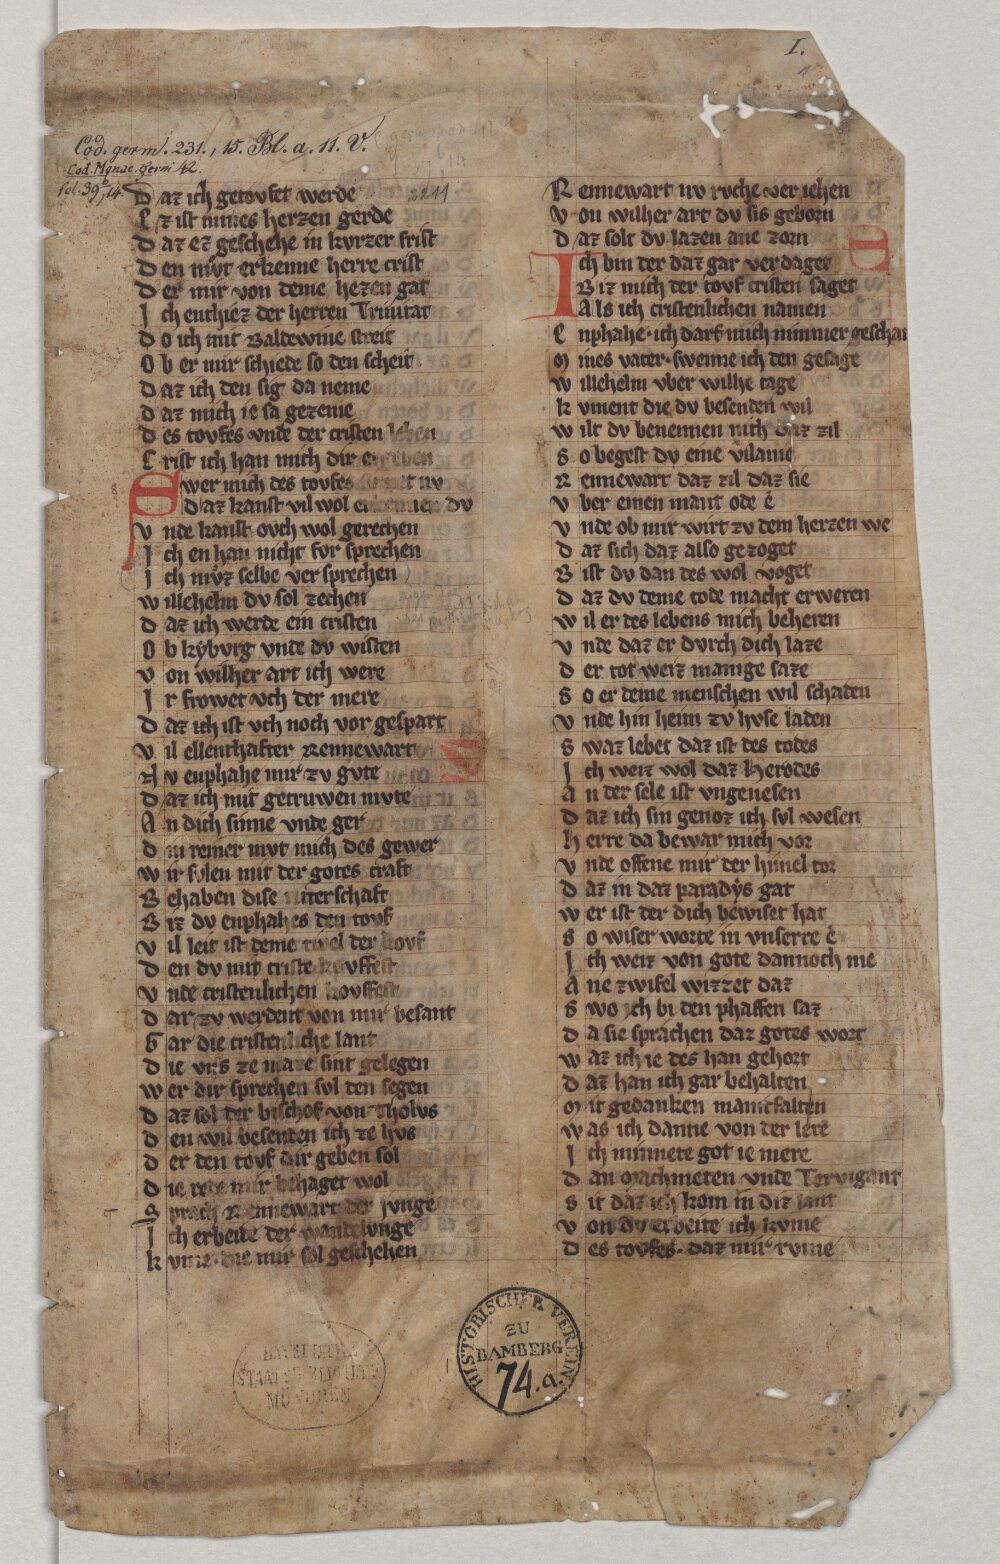 I.
Cod. germ. 231., 15. Bl. a. 11. V.
Cod. Monac. germ 42.
fol. 39, 14
Daz ich getovfet werde 2211
Ez ist mines herzen gerde
Daz ez geschehe in kvrzer frist
Den mvͦt erkenne herre crist
Der mir von deme hezen gat
Ich enthiez der herren Trinitat
Do ich mit Baldewine streit
Ob er mir schiede so den scheit
Daz ich den sig da neme
Daz mich ie sa gezeme
Des tovfes vnde der cristen leben
Crist ich han mich dir ergeben
Swer mich des tovfes nv
daz kanst vil wol erkennen dv
Vnde kanst ovch wol gerechen
Ich en han nicht for sprechen
Ich mvͦz selbe ver sprechen
Willehelm dv sol zechen
Daz ich werde ein cristen
Ob kybvrg vnde dv wisten
Von wilher art ich were
Ir frowet vch der mere
Daz ich ist vch noch vor gespart
Vil ellenthafter Rennewart
Nv enphahe mir zv gvte
Daz ich mit getruwen mvte
An dich sinne vnde ger
Din reiner mvt mich des gewer
Wir svlen mit der gotes craft
Behaben dise ritterschaft
Biz dv enphahes den tovf
Vil leit ist deme tivel der kovf
Den dv mit criste kovffest
Vnde cristenlichen
Dar zv werdent von mir besant
Gar die cristenliche lant
Die vns ze maze sint gelegen
Wer dir sprechen sol den segen
Daz sol der bischof von Tholvs
Den wil besenten ich ze hvs
Der den tovf dir geben sol
Die rede mir behaget wol
Sprach Rennewart der jvnge
Ich erbeite der wandelvnge
Kvme die mir sol geschehen
Rennewart nv rvche ver iehen
Von wilher art dv sis geborn
Daz solt dv lazen ane zorn
Ich bin der daz gar verdaget
Biz mich der tovf cristen saget
Als ich cristenlichen namen
Enphahe ich darf mich nimmer geschan
Mines vater swenne ich den gesage
Willehelm vber wilhe tage
Kvment die dv besenden wil
Wilt dv benennen mich daz zil
So begest dv eine vilanie
Rennewart daz zil daz sie
Vber einen mant ode e
Vnde ob mir wirt zv dem herzen we
Daz sich daz also gezoget
Bist dv dan des wol voget
Daz dv deme tode macht erweren
Wil er des lebens mich beheren
Vnde daz er dvrch dich laze
Der tot weiz manige saze
So er deme menschen wil schaden
Vnde hin heim zv hvse laden
Swaz lebet daz ist des todes
Ich weiz wol daz Herodes
An der sele ist vngenesen
Daz ich sin genoz ich svl wesen
Herre da bewar mich vor
Vnde offene mir der himel tor
Daz in daz paradys gat
Wer ist der dich bewiset hat
So wiser worte in vnserre e
Ich weiz von gote dannoch me
Ane zwifel wizzet daz
Swo ich bi den phaffen saz
Da sie sprachen daz gotes wort
Waz ich ie des han gehort
Daz han ich gar behalten
Mit gedanken manicfalten
Was ich danne von der lere
Ich minnete got ie mere
Dan Machmeten vnde Tervigant
Sit daz ich kom in diz lant
Von dv erbeite ich kvme
Des tovfes daz mir rvme
BAYERISCHE
STAATSBIBLIOTHEK
MÜNCHEN
HISTORISCHER VEREIN
ZU
BAMBERG
74.a.